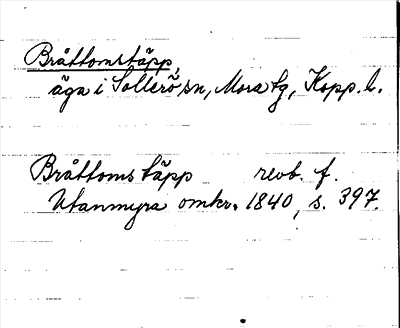 Bråttomstäpp,
äga i Sollerö sn, Mora tg, Kopp. l.
Bråttoms täpp revb. f.
Utanmyra omkr. 1840, s. 397.